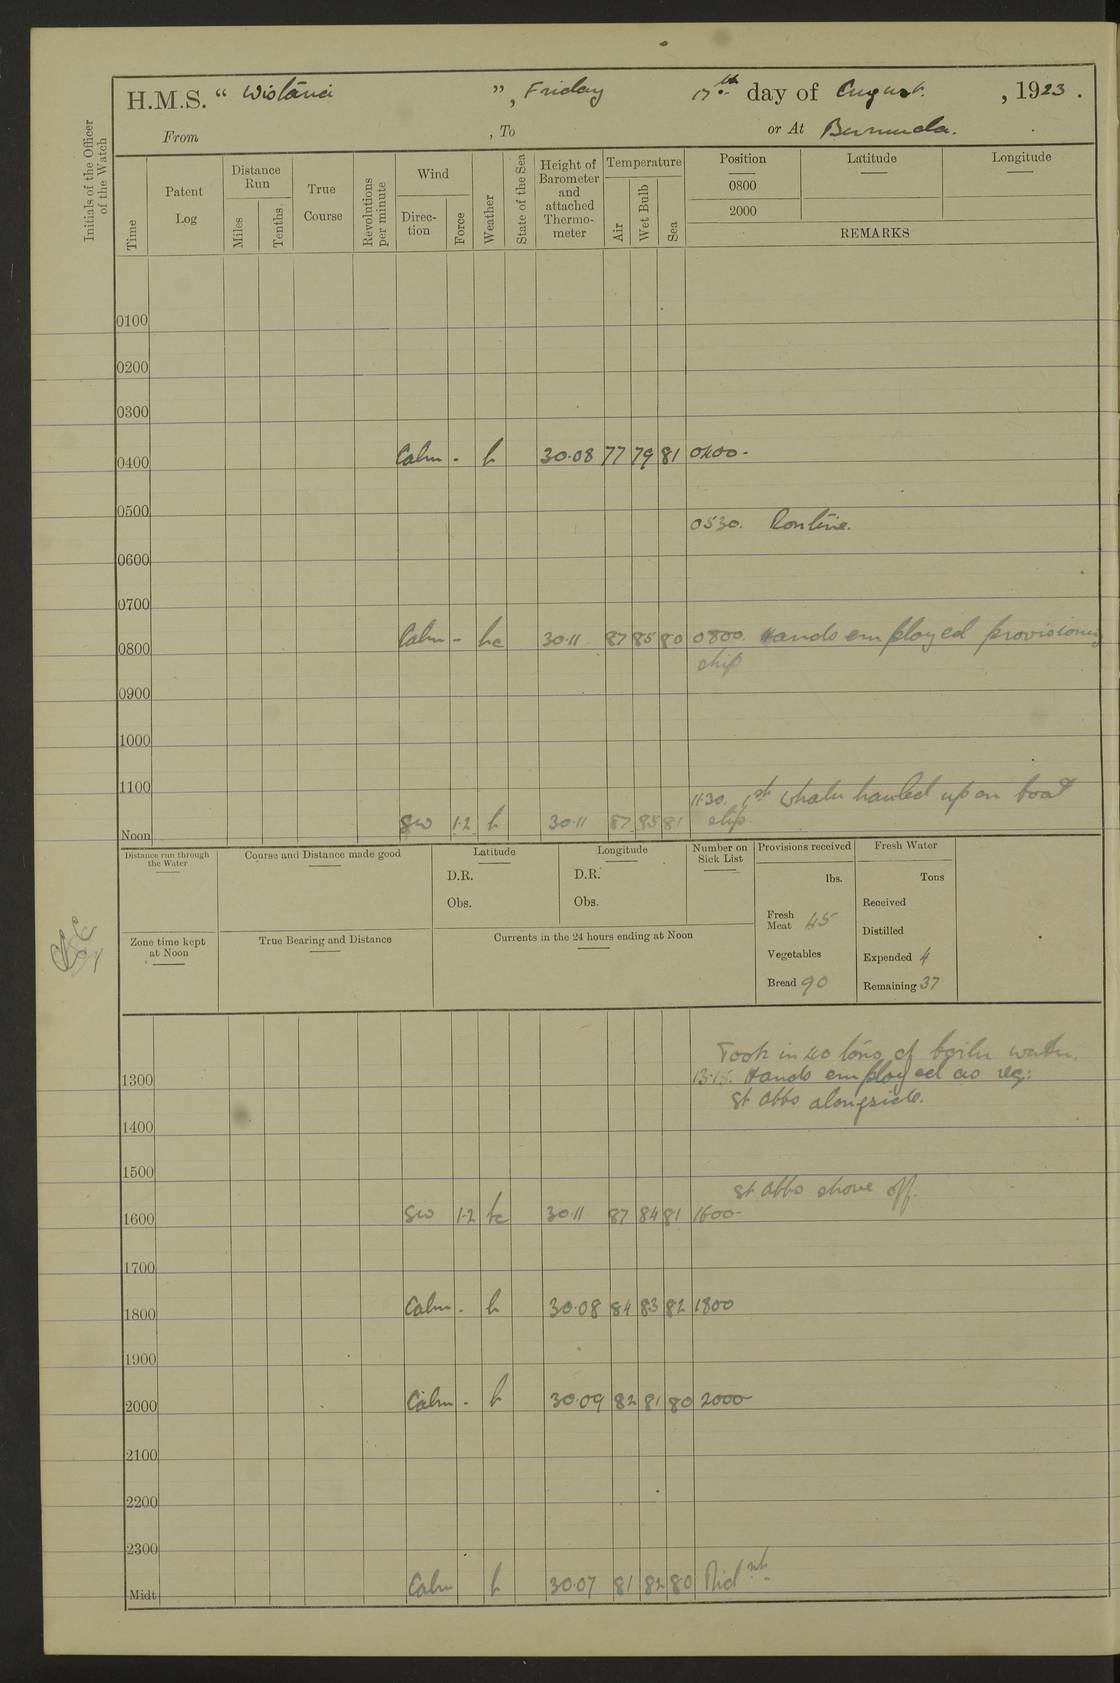 H.M.S. “ Wistaria ”, Friday 17th day of August, 1923.
From , To or At Bermuda.
Initials of the Officer of the Watch
Time
Patent Log
Distance Run
Miles
Tenths
True Course
Revolutions per minute
Wind
Direc-tion
Force
Weather
State of the Sea
Height of Barometer and attached Thermo-meter
Temperature
Air
Wet Bulb
Sea
Position Latitude Longitude
0800
2000
REMARKS
0100
0200
0300
0400 Calm - b 30.08 77 79 81 0400-
0500
0530. Routine.
0600
0700
0800 Calm - bc 30.11 87 85 80 0800. Hands employed provisioning
ship
0900
1000
1100
11.30. 1st Whaler hauled up on boat
Noon SW 1-2 b 30.11 87 85 81 slip.
Distance run through the Water
Course and Distance made good
Latitude
D.R.
Obs.
Longitude
D.R.
Obs.
Number on Sick List
Provisions received
lbs.
Fresh Meat 45
Vegetables
Bread 90
Fresh Water
Tons
Received
Distilled
Expended 4
Remaining 37
Zone time kept at Noon
True Bearing and Distance
Currents in the 24 hours ending at Noon
Took in 40 tons of boiler water.
1300 13.15. Hands employed as req:
St Abbs alongside.
1400
1500
St Abbs shove off.
1600 SW 1-2 bc 30.11 87 84 81 1600-
1700
1800 Calm - b 30.08 84 83 82 1800
1900
2000 Calm - b 30.09 82 81 80 2000
2100
2200
2300
Midt Calm b 30.07 81 82 80 Mid nt.